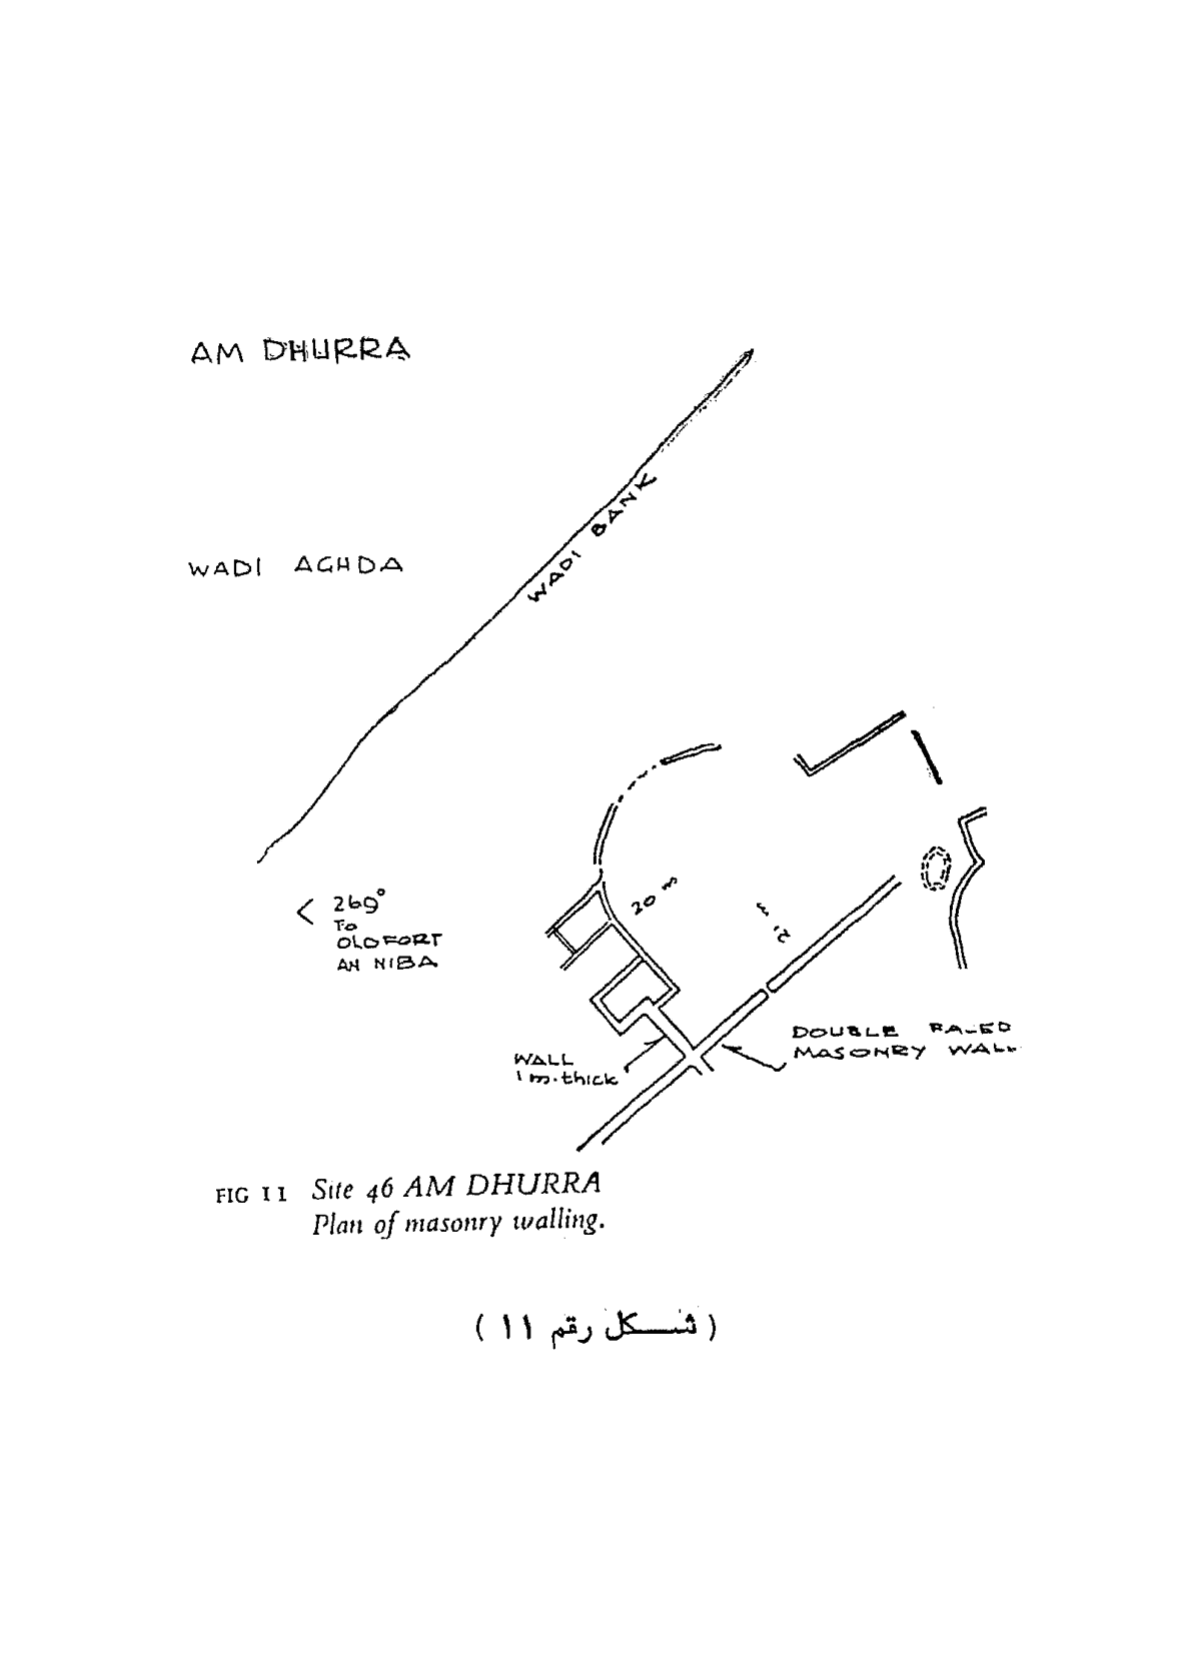 AM DHURRA
WADI BANK
WADI AGHDA
< 269°
TO
OLD FORT
AN NIBA
20 m
WALL
1 m. thick
DOUBLE FACED
MASONRY WALL
FIG 11 Site 46 AM DHURRA
Plan of masonry walling.
( شكل رقم ١١ )